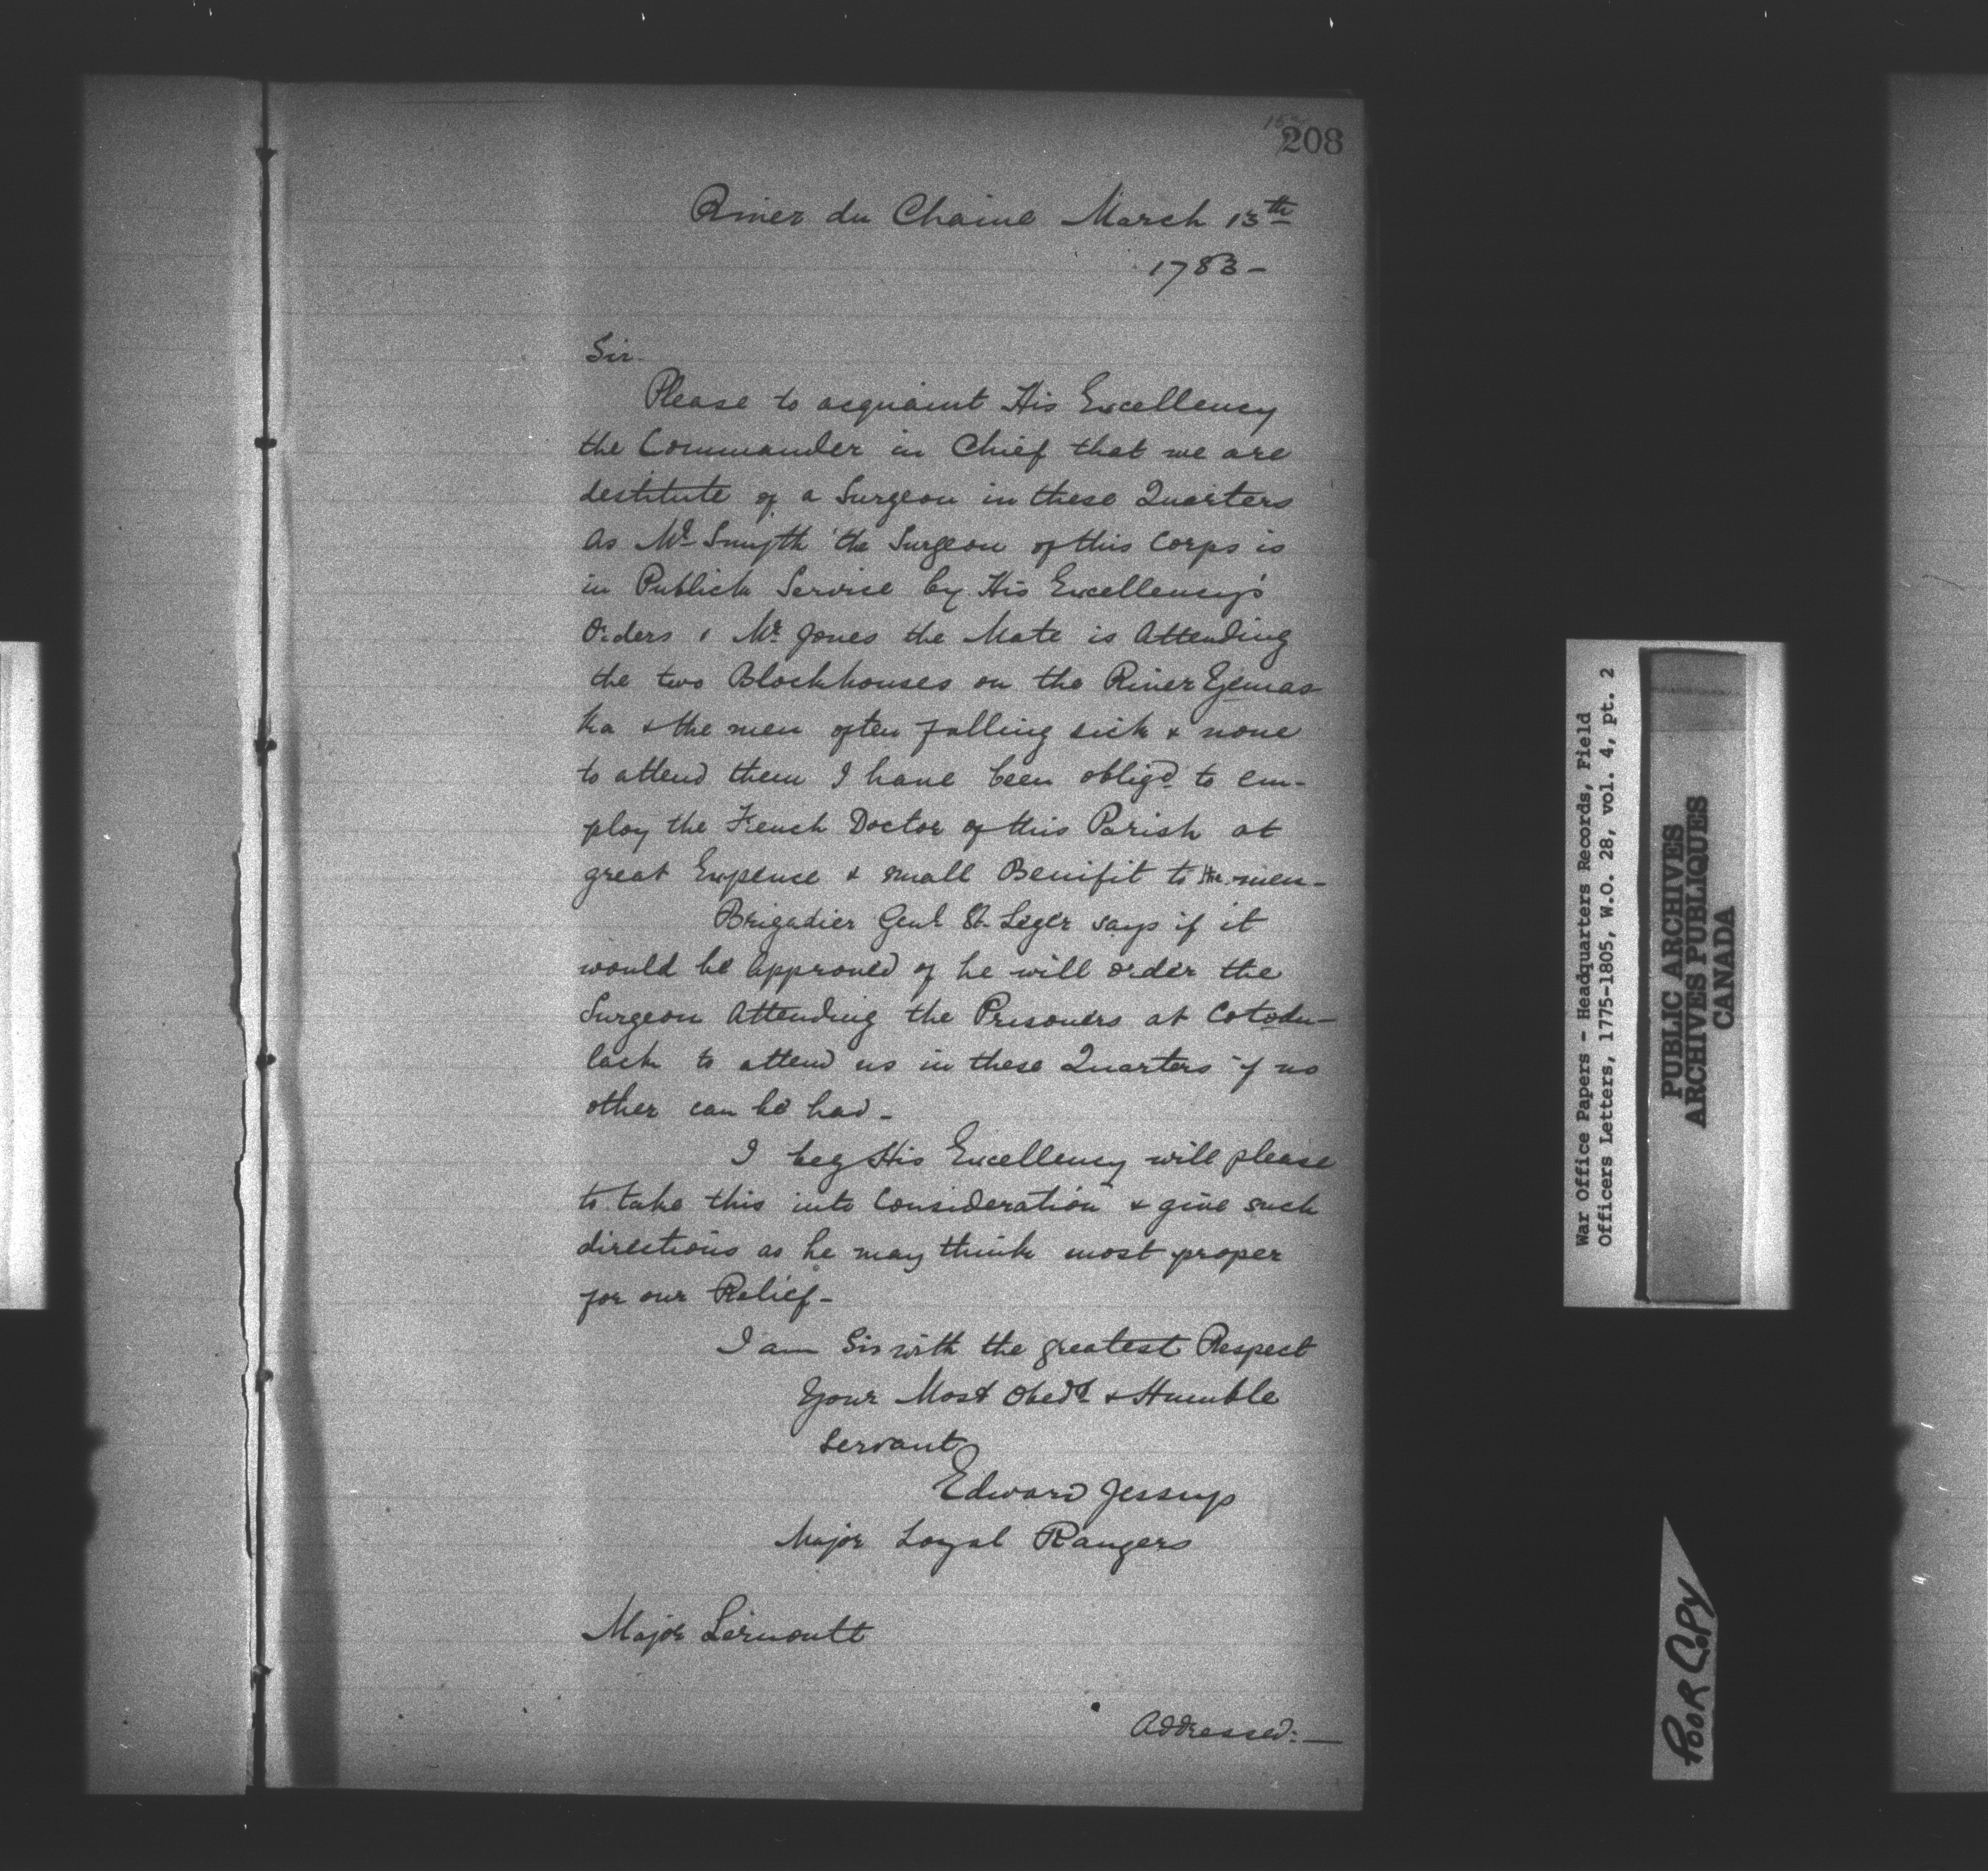 208
River du Chaine March 13th
1783-
Sir.
Please to acquaint His Excellency
the Commander in Chief that we are
destitute of a Surgeon in these Quarters
as Mr Smyth the Surgeon of this Corps is
in Publick Service by His Excellency's
Orders & Mr Jones the Mate is Attending
the two Blockhouses on the River Yemas
ka & the men often falling sick & none
to attend them I have been oblig'd to em-
ploy the French Doctor of this Parish at
great Expence & small Benifit to the men-
Brigadier Genl St. Leger says if it
would be approved of he will order the
Surgeon Attending the Prisoners at Cotodu-
lack to attend us in these Quarters if no
other can be had-
I beg His Excellency will please
to take this into Consideration & give such
directions as he may think most proper
for our Relief-
I am Sir with the greatest Respect
Your Most Obedt & Humble
Servant
Edward Jessup
Major Loyal Rangers
Major Lernoult
Addressed:—
War Office Papers - Headquarters Records, Field
Officers Letters, 1775-1805, W.O. 28, vol. 4, pt. 2
PUBLIC ARCHIVES
ARCHIVES PUBLIQUES
CANADA
POOR COPY